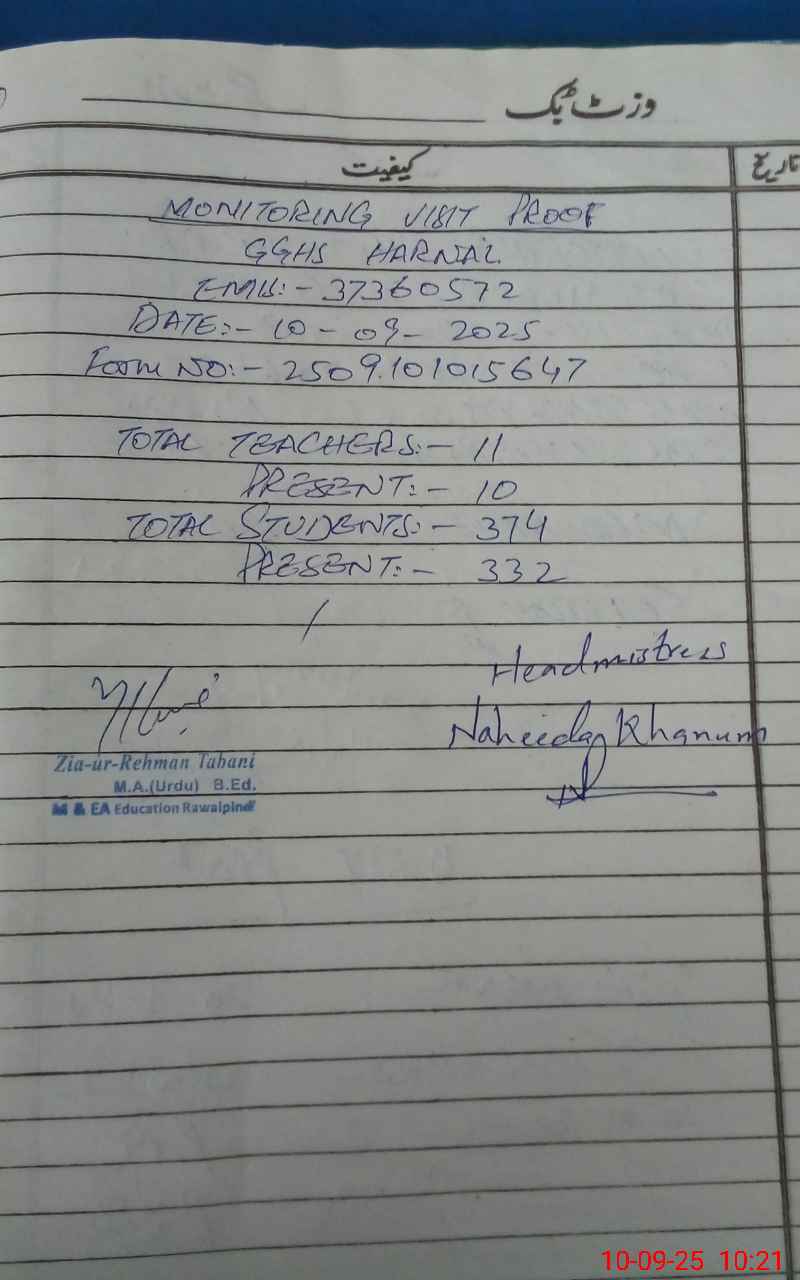 وزٹ بک
کیفیت
تاریخ
MONITORING VISIT PROOF
GGHS HARNIAL
EMIS:- 37360572
DATE:- 10-09-2025
Form NO:- 2509.101015647
TOTAL TEACHERS:- 11
PRESENT:- 10
TOTAL STUDENTS:- 374
PRESENT:- 332
Headmistress
Naheeda Khanum
Zia-ur-Rehman Tabani
M.A.(Urdu) B.Ed.
M & EA Education Rawalpindi
10-09-25 10:21